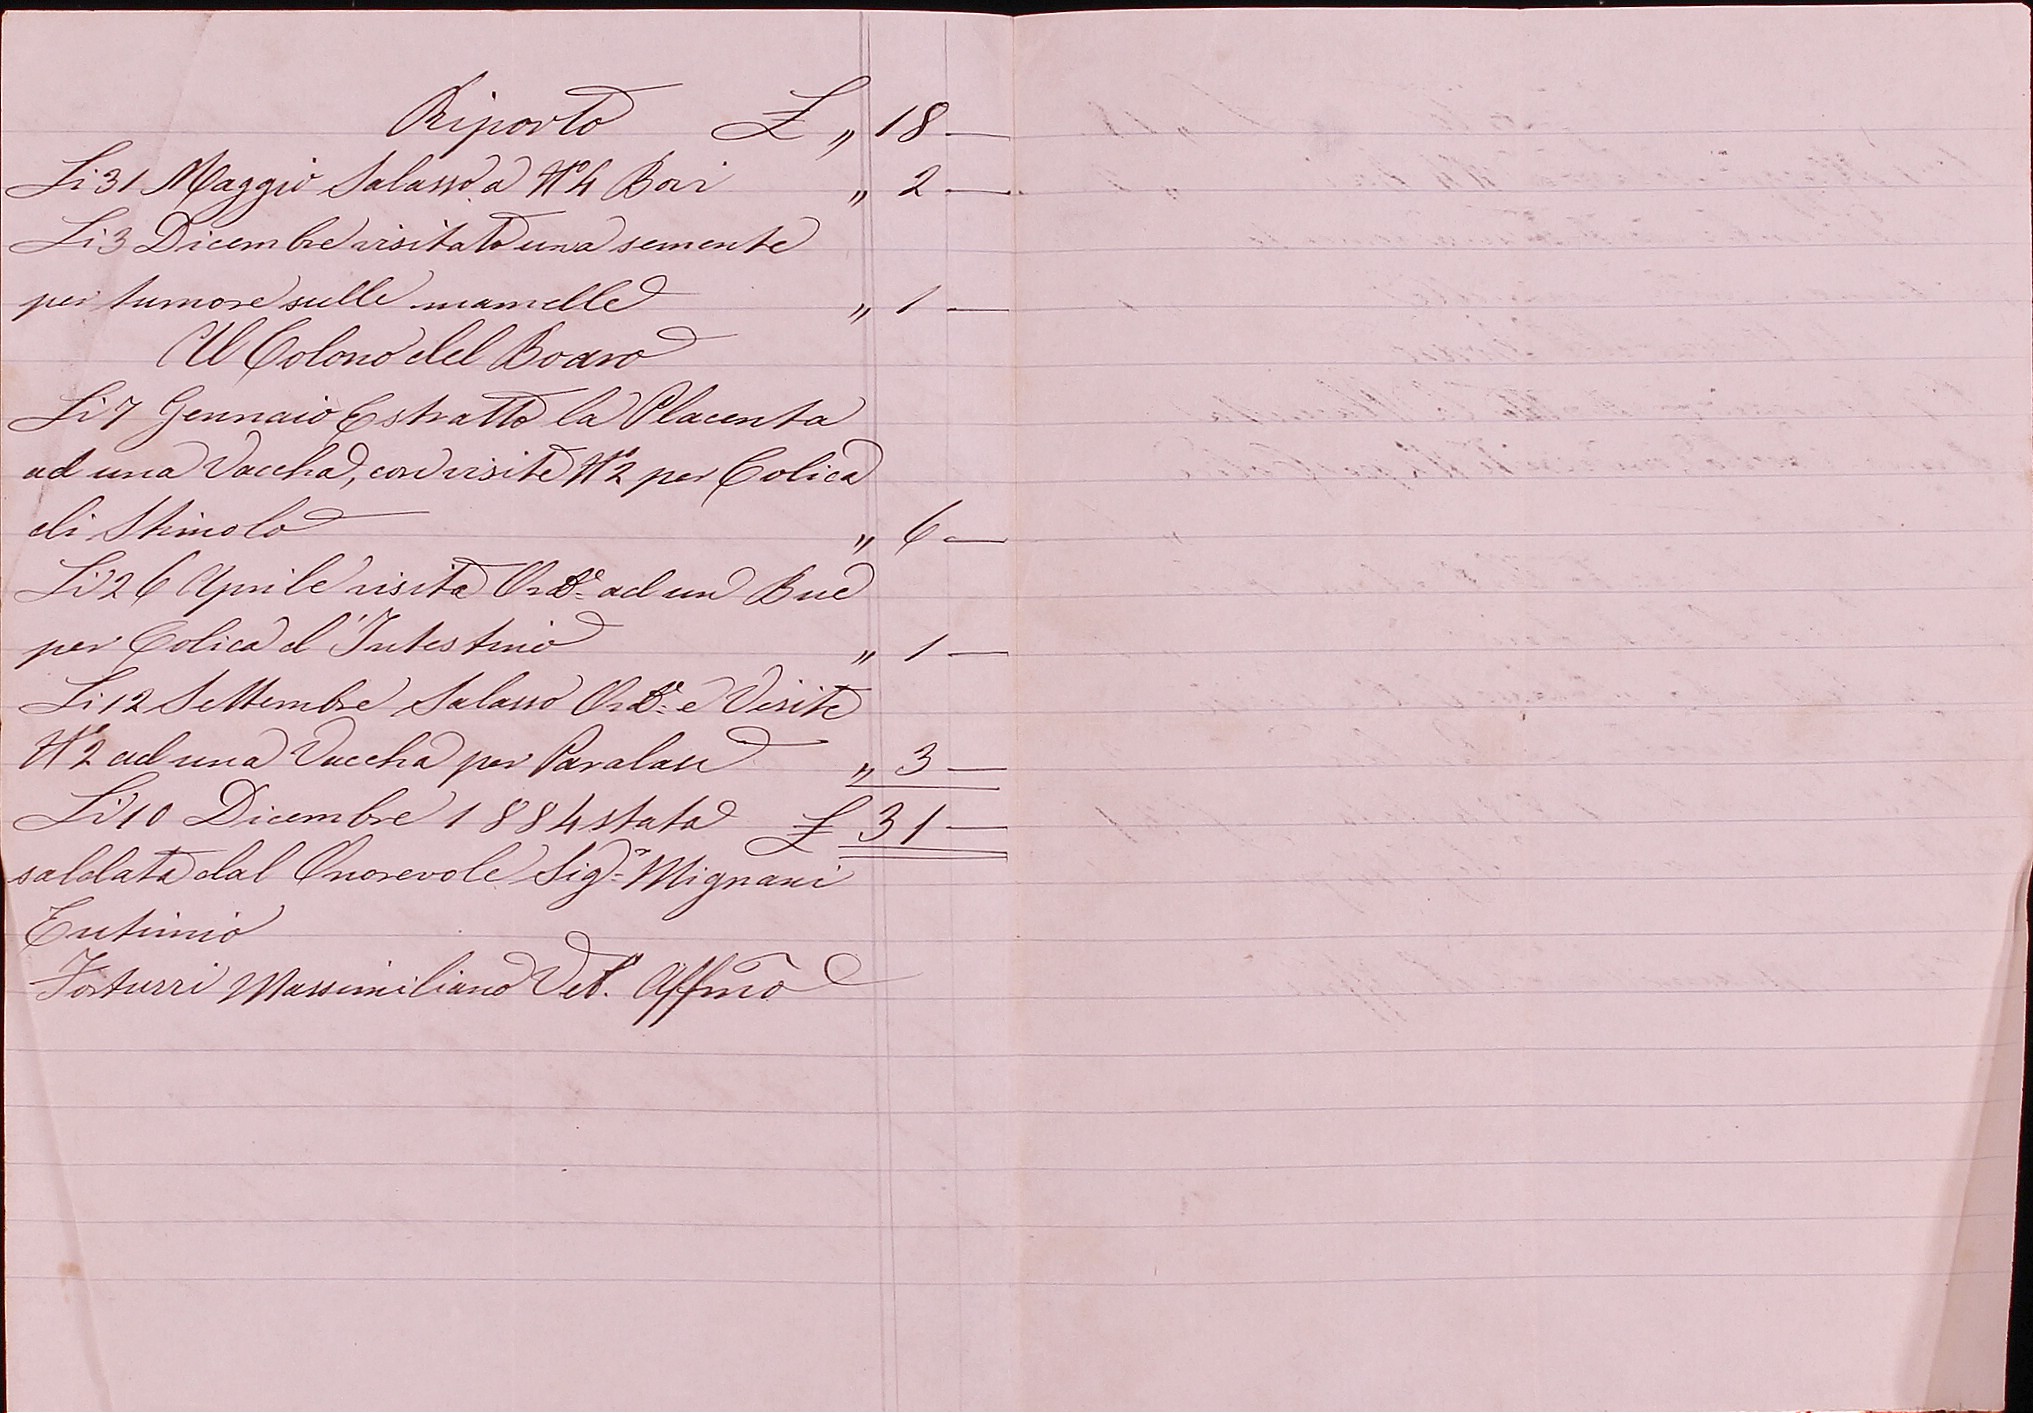 Riporto £ „ 18 —
Li 31 Maggio Salasso a N° 4 Bovi „ 2 —
Li 3 Dicembre visitato una semente
per tumore sulle mamelle „ 1 —
Al Colono del Boaro
Li 7 Gennaio Estratto la Placenta
ad una Vaccha, con visite N° 2 per Colica
di Stimolo „ 6 —
Li 26 Aprile visita Ord.e ad un Bue
per Colica d'Intestino „ 1 —
Li 12 Settembre Salasso Ord.e e Visite
N° 2 ad una Vaccha per Paralasi „ 3 —
Li 10 Dicembre 1884 stata £ 31 —
saldata dal Onorevole Sig.r Mignani
Eutimio
Massimiliano Vet.o Affmo